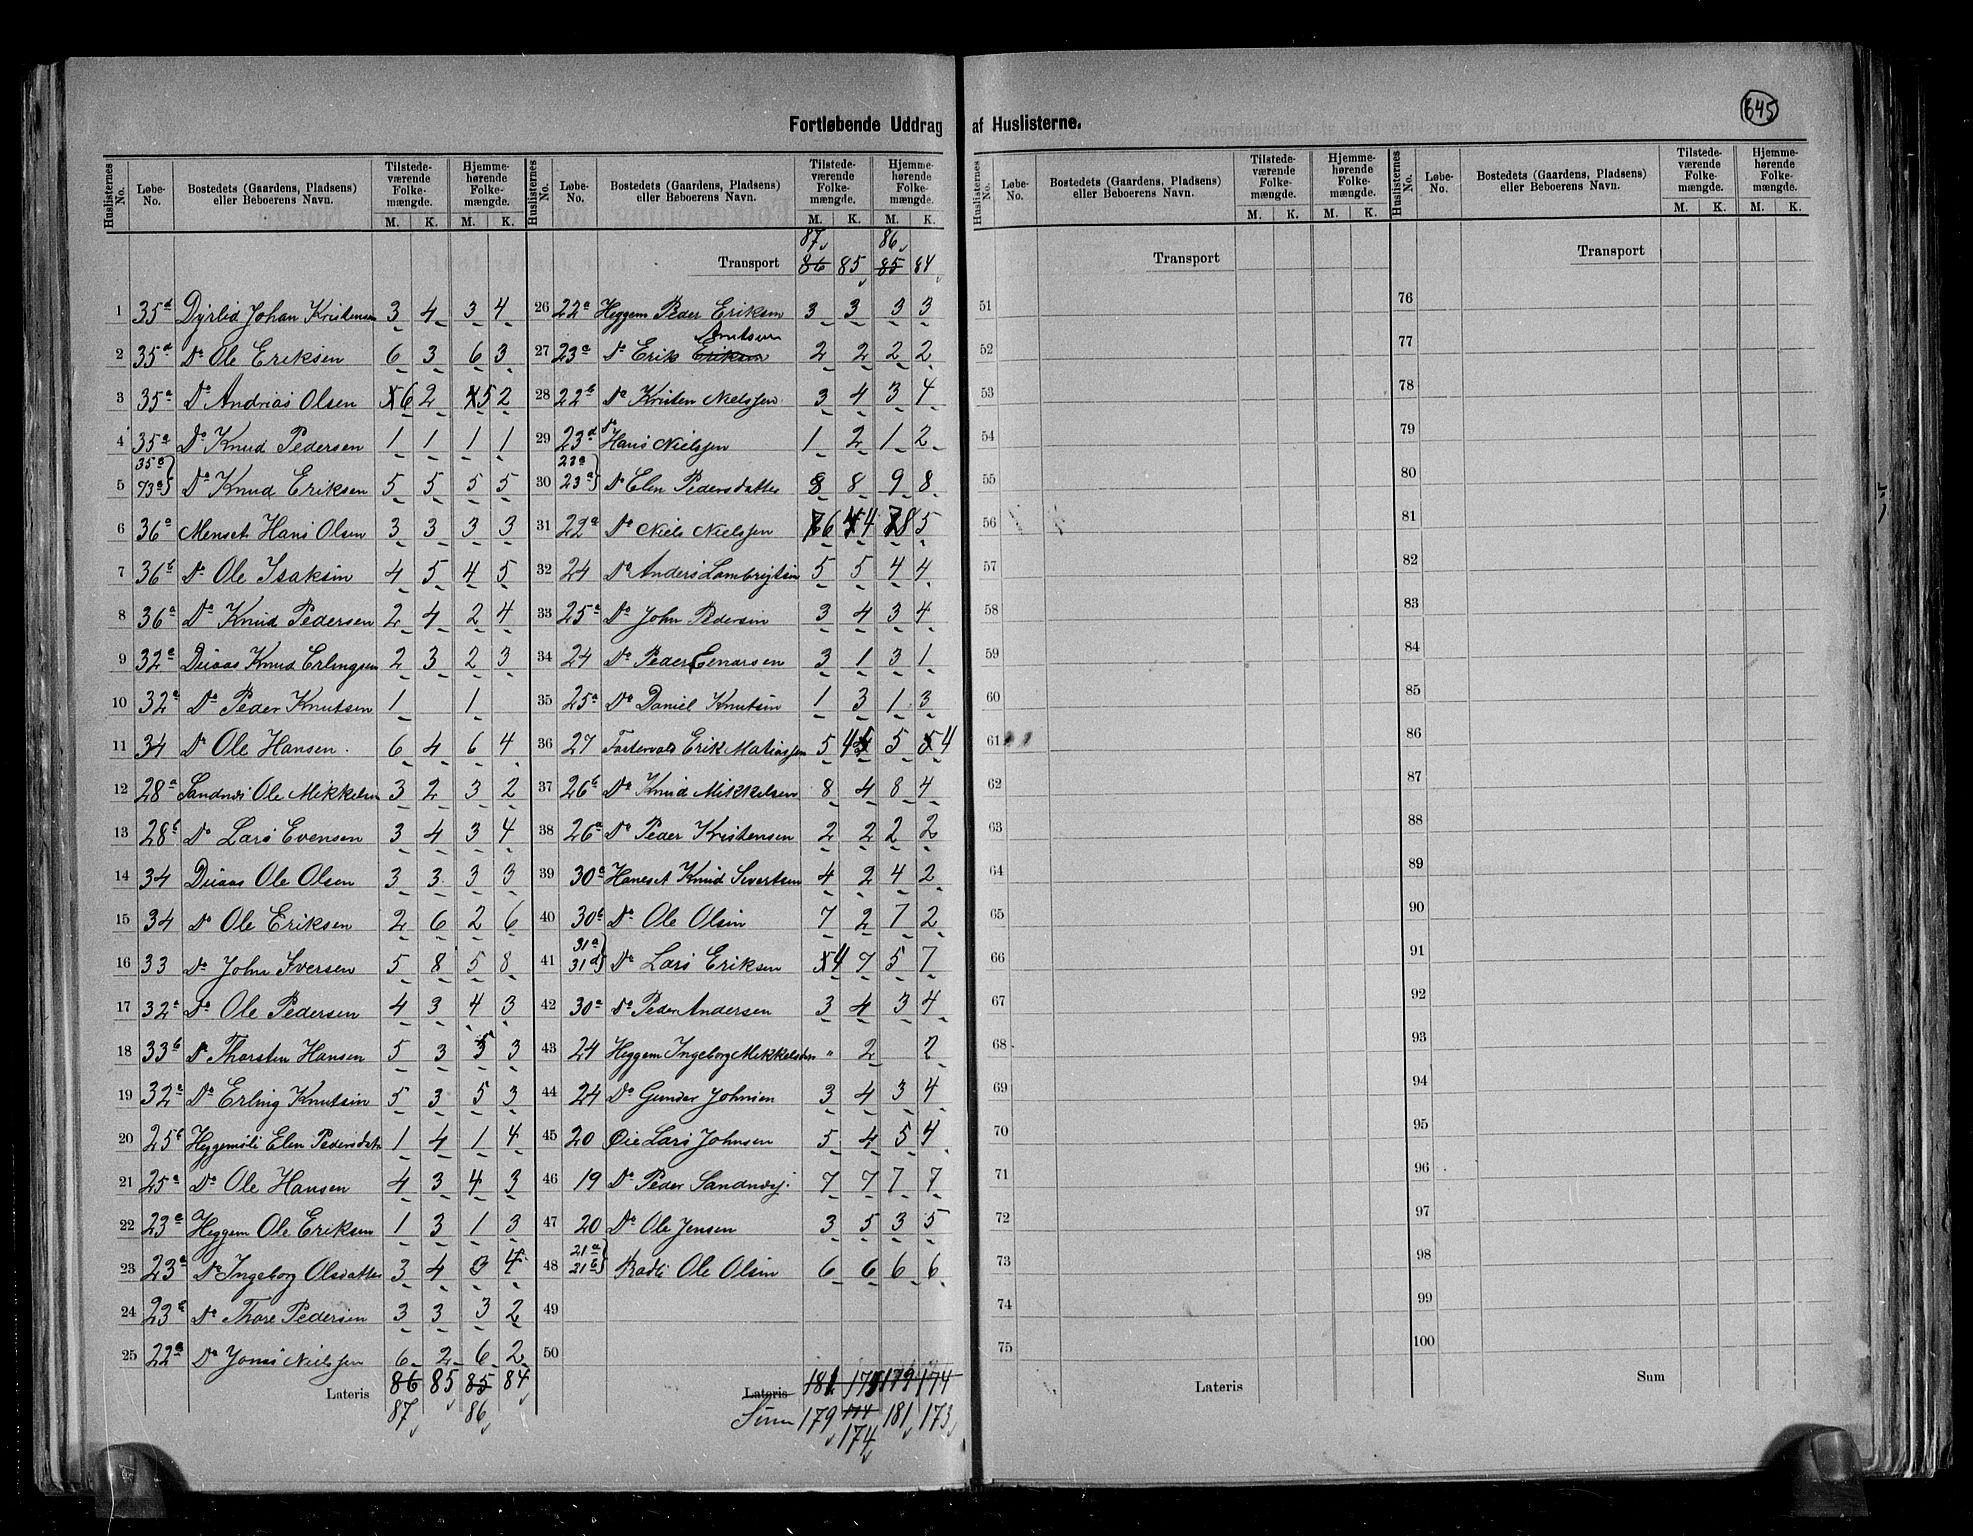 645
Fortløbende Uddrag af Huslisterne.
Huslisternes No. Løbe-No. Bostedets (Gaardens, Pladsens) eller Beboerens Navn. Tilstedeværende Folkemængde. M. K. Hjemmehørende Folkemængde. M. K.
1 35d Dyrlid Johan Kristensen 3 4 3 4
2 35d Do Ole Eriksen 6 3 6 3
3 35a Do Andrias Olsen 6 2 5 2
4 35a Do Knud Pedersen 1 1 1 1
5 35a 93a Do Knud Eriksen 5 5 5 5
6 36a Menset Hans Olsen 3 3 3 3
7 36b Do Ole Isaksen 4 5 4 5
8 36a Do Knud Pedersen 2 4 2 4
9 32a Duaas Knud Erlingsen 2 3 2 3
10 32a Do Peder Knutsen 1 1
11 34 Do Ole Hansen. 6 4 6 4
12 28a Sandnes Ole Mikkelsen 3 2 3 2
13 28b Do Lars Evensen 3 4 3 4
14 34 Duaas Ole Olsen 3 3 3 3
15 34 Do Ole Eriksen 2 6 2 6
16 33 Do John Iversen 5 8 5 8
17 32a Do Ole Pedersen 4 3 4 3
18 33b Do Thorsten Hansen 5 3 5 3
19 32a Do Erling Knutsen 5 3 5 3
20 25b Heggemsli Elen Pedersdatr 1 4 1 4
21 25a Do Ole Hansen 4 3 4 3
22 23a Heggem Ole Eriksen 1 3 1 3
23 23a Do Ingeborg Olsdatter 3 4 3 4
24 23a Do Thore Pedersen 3 3 3 2
25 22a Do Jonas Nielssen 6 2 6 2
Lateris 86 85 85 84
87 86
Huslisternes No. Løbe-No. Bostedets (Gaardens, Pladsens) eller Beboerens Navn. Tilstedeværende Folkemængde. M. K. Hjemmehørende Folkemængde. M. K.
87 86
Transport 86 85 85 84
26 22a Heggem Peder Eriksen 3 3 3 3
27 23a Do Erik Eriksen Knutsen 2 2 2 2
28 22b Do Kristen Nielssen. 3 4 3 4
29 23d Do Hans Nielssen 1 2 1 2
30 22a 23a Do Elen Pedersdatter 8 8 9 8
31 22a Do Niels Nielssen 7 6 4 7 8 5
32 24 Do Anders Lambregtsen 5 5 4 4
33 25a Do John Pedersen 3 4 3 4
34 24 Do Peder Einarsen 3 1 3 1
35 25a Do Daniel Knutsen 1 3 1 3
36 27 Erik Matiassen 5 4 5 5 5 4
37 26b Do Knud Mikkelsen 8 4 8 4
38 26a Do Peder Kristensen 2 2 2 2
39 30a Haneset Knud Sivertsen 4 2 4 2
40 30b Do Ole Olsen 7 2 7 2
41 31a 31d Do Lars Eriksen 4 7 5 7
42 30a Do Peder Andersen 3 4 3 4
43 24 Heggem Ingeborg Mikkelsdtr " 2 2
44 24 Do Gunder Johnsen 3 4 3 4
45 20 Øie Lars Johnsen 5 4 5 4
46 19 Do Peder Sandnesj. 7 7 7 7
47 20 Do Ole Jensen 3 5 3 5
48 21a 21b Rødli Ole Olsen 6 6 6 6
49
50
Lateris 181 175 179 174
Sum 179 174 181 173
174
Huslisternes No. Løbe-No. Bostedets (Gaardens, Pladsens) eller Beboerens Navn. Tilstedeværende Folkemængde. M. K. Hjemmehørende Folkemængde. M. K.
Transport
51
52
53
54
55
56
57
58
59
60
61
62
63
64
65
66
67
68
69
70
71
72
73
74
75
Lateris
Huslisternes No. Løbe-No. Bostedets (Gaardens, Pladsens) eller Beboerens Navn. Tilstedeværende Folkemængde. M. K. Hjemmehørende Folkemængde. M. K.
Transport
76
77
78
79
80
81
82
83
84
85
86
87
88
89
90
91
92
93
94
95
96
97
98
99
100
Sum